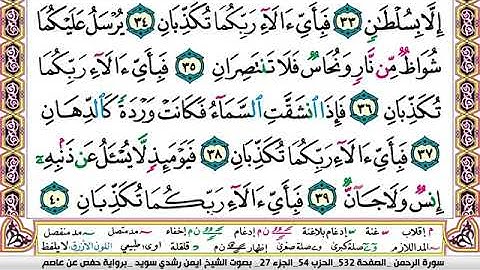 إِلَّا بِسُلْطَٰنٍ ٣٣ فَبِأَيِّ ءَالَآءِ رَبِّكُمَا تُكَذِّبَانِ ٣٤ يُرْسَلُ عَلَيْكُمَا
شُوَاظٌ مِّن نَّارٍ وَنُحَاسٌ فَلَا تَنتَصِرَانِ ٣٥ فَبِأَيِّ ءَالَآءِ رَبِّكُمَا
تُكَذِّبَانِ ٣٦ فَإِذَا ٱنشَقَّتِ ٱلسَّمَآءُ فَكَانَتْ وَرْدَةً كَٱلدِّهَانِ
٣٧ فَبِأَيِّ ءَالَآءِ رَبِّكُمَا تُكَذِّبَانِ ٣٨ فَيَوْمَئِذٍ لَّا يُسْـَٔلُ عَن ذَنۢبِهِۦٓ
إِنسٌ وَلَا جَآنٌّ ٣٩ فَبِأَيِّ ءَالَآءِ رَبِّكُمَا تُكَذِّبَانِ ٤٠
م إقلاب غنة إدغام بلاغنة إدغام إخفاء مد متصل مد منفصل
المد اللازم صلة كبرى وصلة صغرى إظهار قلقلة طبيعي اللون الأزرق لا يلفظ
سورة الرحمن _الصفحة 532_ الحزب 54_ الجزء 27_ بصوت الشيخ ايمن رشدي سويد _برواية حفص عن عاصم